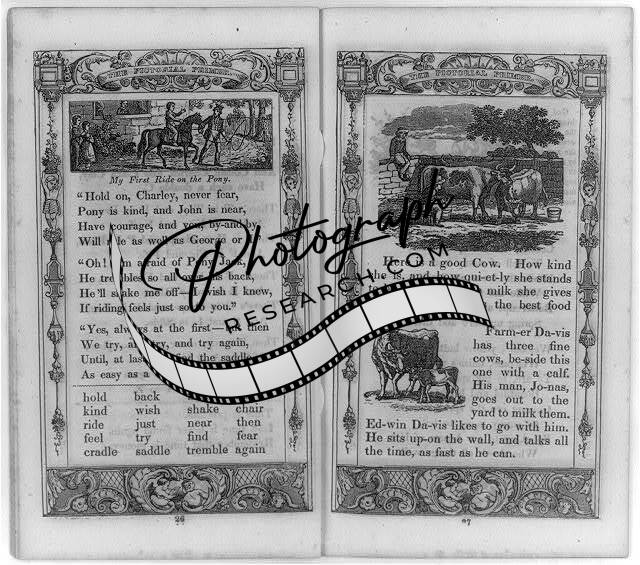 THE PICTORIAL PRIMER.
My First Ride on the Pony.
"Hold on, Charley, never fear,
Pony is kind, and John is near,
Have courage, and you, by-and-by
Will as well as George or
"Oh! afraid of Pony Jack,
He trembles so all over his back,
He'll shake me off— wish I knew,
If riding feels just so to you."
"Yes, always at the first— then
We try, try, and try again,
Until, at last find the saddle
As easy as a
hold back
kind wish shake chair
ride just near then
feel try find fear
cradle saddle tremble again
26
THE PICTORIAL PRIMER.
Here is a good Cow. How kind
she is, and how qui-et-ly she stands
milk she gives
the best food
Farm-er Da-vis
has three fine
cows, be-side this
one with a calf.
His man, Jo-nas,
goes out to the
yard to milk them.
Ed-win Da-vis likes to go with him.
He sits up-on the wall, and talks all
the time, as fast as he can.
27
Photograph
RESEARCH.COM